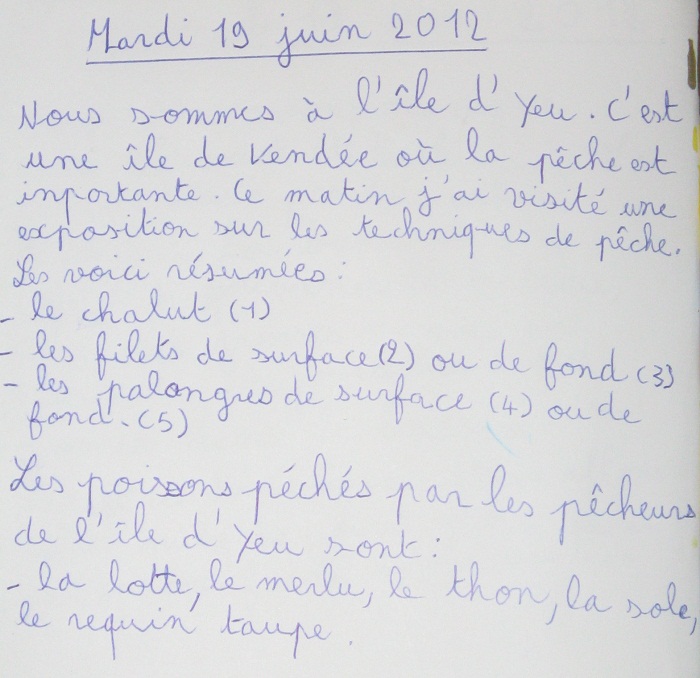 Mardi 19 juin 2012
Nous sommes à l'île d'Yeu. C'est
une île de Vendée où la pêche est
inportante. Ce matin j'ai visité une
exposition sur les techniques de pêche.
Les voici résumées :
- le chalut (1)
- les filets de surface (2) ou de fond (3)
- les palangres de surface (4) ou de
fond. (5)
Les poissons péchés par les pêcheurs
de l'île d'Yeu sont :
- la lotte, le merlu, le thon, la sole,
le requin taupe.